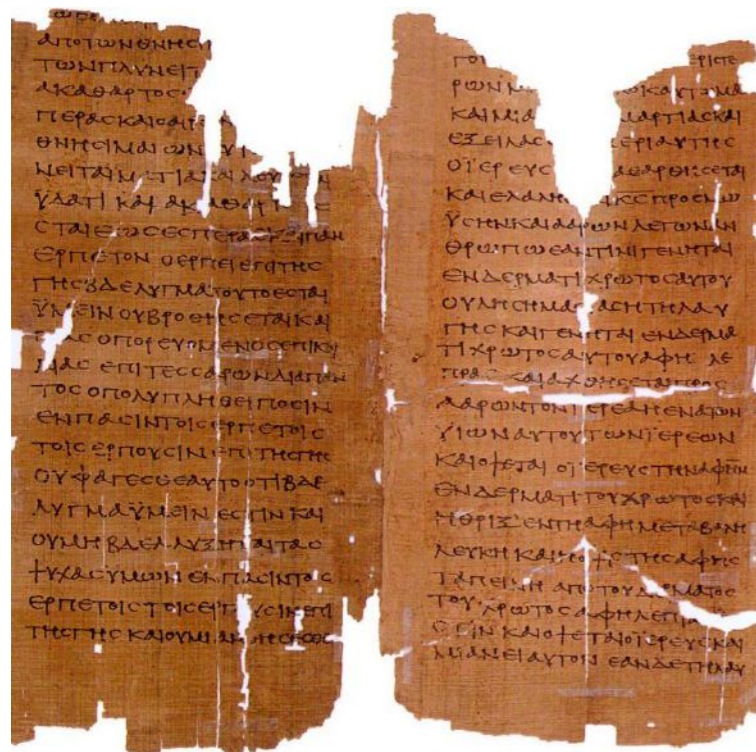 ΑΠΟΤΩΝΘΝΗϹΙ
ΤΩΝΠΛΥΝΕΙΤ
ΑΚΑΘΑΡΤΟϹ
ΠΕΡΑϹΚΑΙΟΑΙΡ
ΘΝΗϹΙΜΑΙΩΝ
ΝΕΙΤΑΙΜΑΤΙΑΚΑΙΛΟΥ
ΫΔΑΤΙΚΑΙΑΚΑΘΑΡ
ϹΤΑΙΕΩϹΕϹΠΕΡΑϹΚΑΙΠΑΝ
ΕΡΠΕΤΟΝΟΕΡΠΕΙΕΠΙΤΗϹ
ΓΗϹΒΔΕΛΥΓΜΑΤΟΥΤΟΕϹΤΑΙ
ΫΜΕΙΝΟΥΒΡΟΘΗϹΕΤΑΙΚΑΙ
ΠΑϹΟΠΟΡΕΥΟΜΕΝΟϹΕΠΙΚΟΙ
ΛΙΑϹΕΠΙΤΕϹϹΑΡΩΝΔΙΑΠΑΝ
ΤΟϹΟΠΟΛΥΠΛΗΘΕΙΠΟϹΙΝ
ΕΝΠΑϹΙΝΤΟΙϹΕΡΠΕΤΟΙϹ
ΤΟΙϹΕΡΠΟΥϹΙΝΕΠΙΤΗϹΓΗϹ
ΟΥΦΑΓΕϹΘΕΑΥΤΟΟΤΙΒΔΕ
ΛΥΓΜΑΫΜΕΙΝΕϹΤΙΝΚΑΙ
ΟΥΜΗΒΔΕΛΛΥΞΗΤΑΙΤΑϹ
ΨΥΧΑϹΥΜΩΝΕΝΠΑϹΙΝΤΟΙϹ
ΕΡΠΕΤΟΙϹΤΟΙϹΕΡΠΟΥϹΙΝΕΠΙ
ΤΗϹΓΗϹΚΑΙΟΥΜΙΑΝΘΗϹΕϹΘΕ
ΓΟΝ ΕΡΙϹΤΕ
ΡΩΝΜ ΚΑΥΤΩΜΑ
ΚΑΙΜΙΑ ΜΑΡΤΙΑϹΚΑΙ
ΕΞΕΙΛΑϹ ΕΡΙΑΥΤΗϹ
ΟΪΕΡΕΥϹ ΑΘΑΡΘΗϹΕΤΑΙ
ΚΑΙΕΛΑΛΗ ΚϹΠΡΟϹΜΩ
ΫϹΗΝΚΑΙΑΑΡΩΝΛΕΓΩΝΑΝ
ΘΡΩΠΩΕΑΝΤΙΝΙΓΕΝΗΤΑΙ
ΕΝΔΕΡΜΑΤΙΧΡΩΤΟϹΑΥΤΟΥ
ΟΥΛΗϹΗΜΑϹΙΑϹΗΤΗΛΑΥ
ΓΗϹΚΑΙΓΕΝΗΤΑΙΕΝΔΕΡΜΑ
ΤΙΧΡΩΤΟϹΑΥΤΟΥΑΦΗΛΕ
ΠΡΑϹΚΑΙΑΧΘΗϹΕΤΑΙΠΡΟϹ
ΑΑΡΩΝΤΟΝΪΕΡΕΑΗΕΝΑΤΩΝ
ΥΙΩΝΑΥΤΟΥΤΩΝΪΕΡΕΩΝ
ΚΑΙΟΨΕΤΑΙΟΪΕΡΕΥϹΤΗΝΑΦΗΝ
ΕΝΔΕΡΜΑΤΙΤΟΥΧΡΩΤΟϹΚΑΙ
ΗΘΡΙΞΕΝΤΗΑΦΗΜΕΤΑΒΑΛΗ
ΛΕΥΚΗΚΑΙΗΟΨΙϹΤΗϹΑΦΗϹ
ΤΑΠΕΙΝΗΑΠΟΤΟΥΔΕΡΜΑΤΟϹ
ΤΟΥΧΡΩΤΟϹΑΦΗΛΕΠΡΑ
ϹΤΙΝΚΑΙΟΨΕΤΑΙΟΪΕΡΕΥϹΚΑΙ
ΜΙΑΝΕΙΑΥΤΟΝΕΑΝΔΕΤΗΛΑΥ